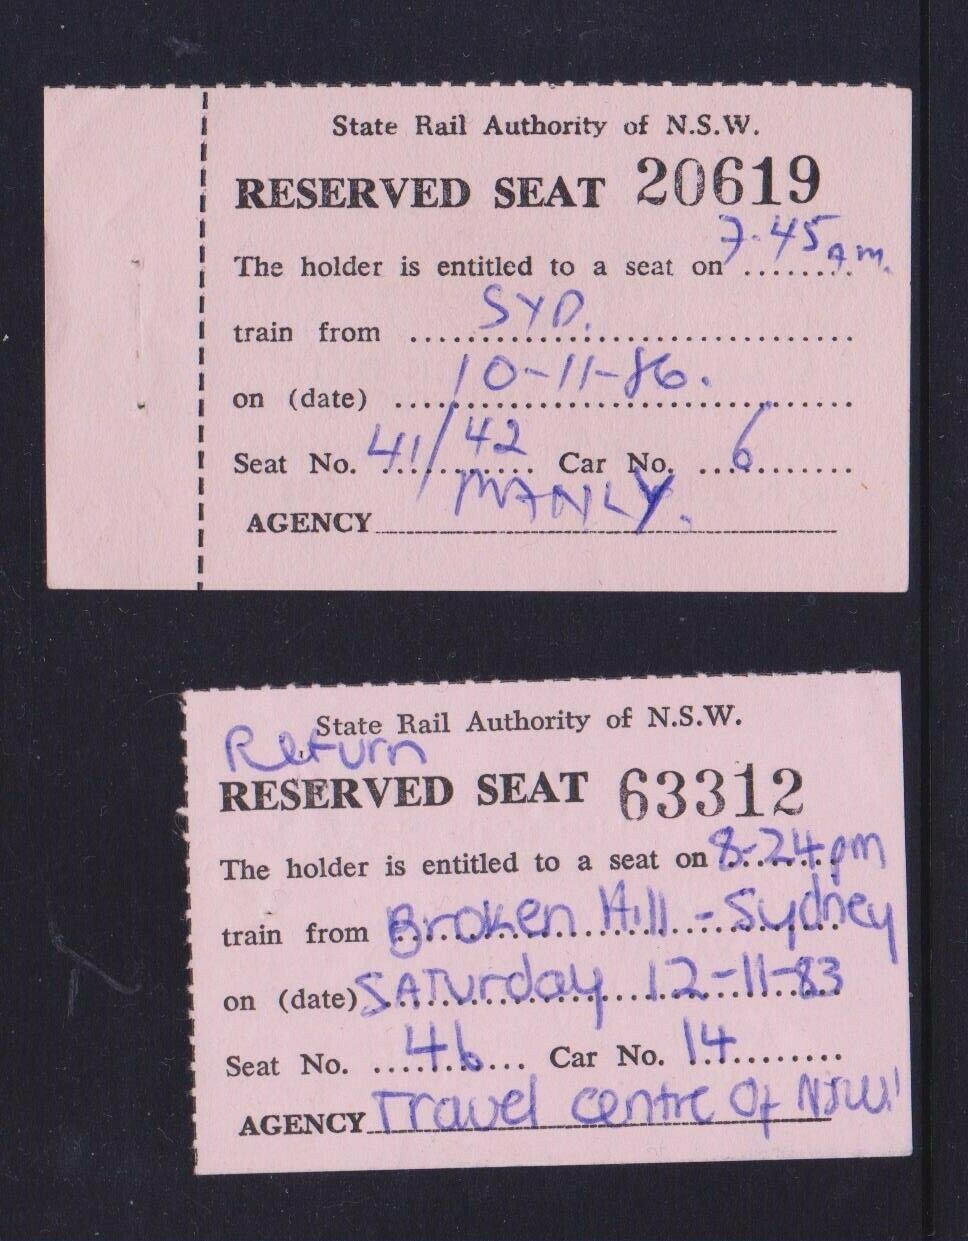 State Rail Authority of N.S.W.
RESERVED SEAT 20619
The holder is entitled to a seat on 7.45 Am.
train from SYD.
on (date) 10-11-86.
Seat No. 41/42 Car No. 6
AGENCY MANLY.
State Rail Authority of N.S.W.
Return
RESERVED SEAT 63312
The holder is entitled to a seat on 8-24pm
train from Broken Hill - Sydney
on (date) SATurday 12-11-83
Seat No. 46 Car No. 14
AGENCY Travel centre Of NSW!